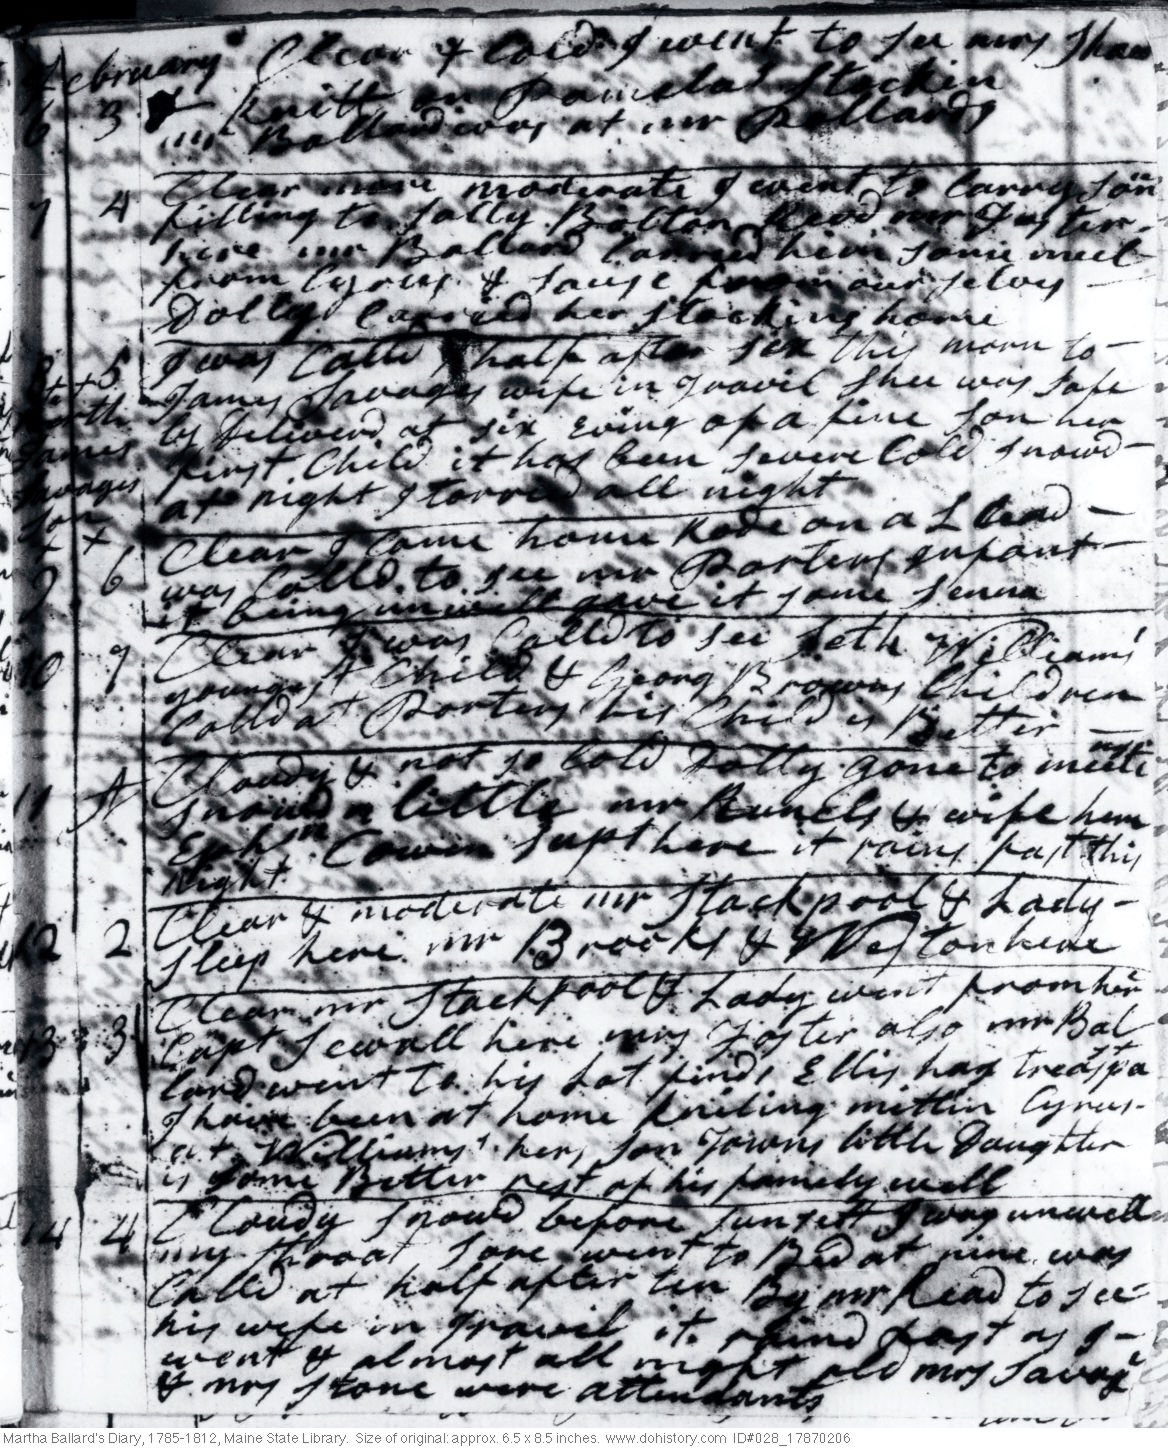 February Clear & Cold I went to see mrs Shaw
6 3 I knitt on Pamelas Stockin
mr Ballard was at mr Pollards
7 4 Clear more moderate I went to Carry Some
filling to Sally Bolton. mr Foster
here mr Ballard Carried him some meet
from Cyrus & sause from our selvs
Dolly Carried her Stocking home
8 5 I was Calld half after six this morn to
James Savages wife in Travil shee was safe
ly Deliverd at six Evng of a fine son her
first Child it has been severe Cold snowd
at night I tarried all night
Birth James Savages son x x
9 6 Clear I Came home Rode on a Slead
was Calld to see mr Porters infant
it being unwell gave it some senna
10 7 Clear I was Calld to see Seth Williams'
youngest Child & Georg Browns Children
Calld at Porters his Child is Better
11 A Cloudy & not so Cold Dolly gone to meeting
snowd a little mr Runels & wife here
Ephm Cowen supt here it rains fast this
night
12 2 Clear & moderate mr Stackpool & Lady
sleep here mr Brooks & Weston here
13 3 Clear mr Stackpool & Lady went from her
Capt Sewall here mrs Foster also mr Bal
lard went to his Lot finds Ellis has trespa
I have been at home kniting mittin Cyrus
at Williams' hers son Towns little Daughter
is some Better rest of his famely well
14 4 Cloudy snowd before sunsett I was unwell
my throat sore went to Bed at nine was
Calld at half after ten By mr Read to see
his wife in Travil it raind fast as I
went & almost all night old mrs Savage
& mrs Stone were attendants
Martha Ballard's Diary, 1785-1812, Maine State Library. Size of original: approx. 6.5 x 8.5 inches. www.dohistory.com ID#028_17870206